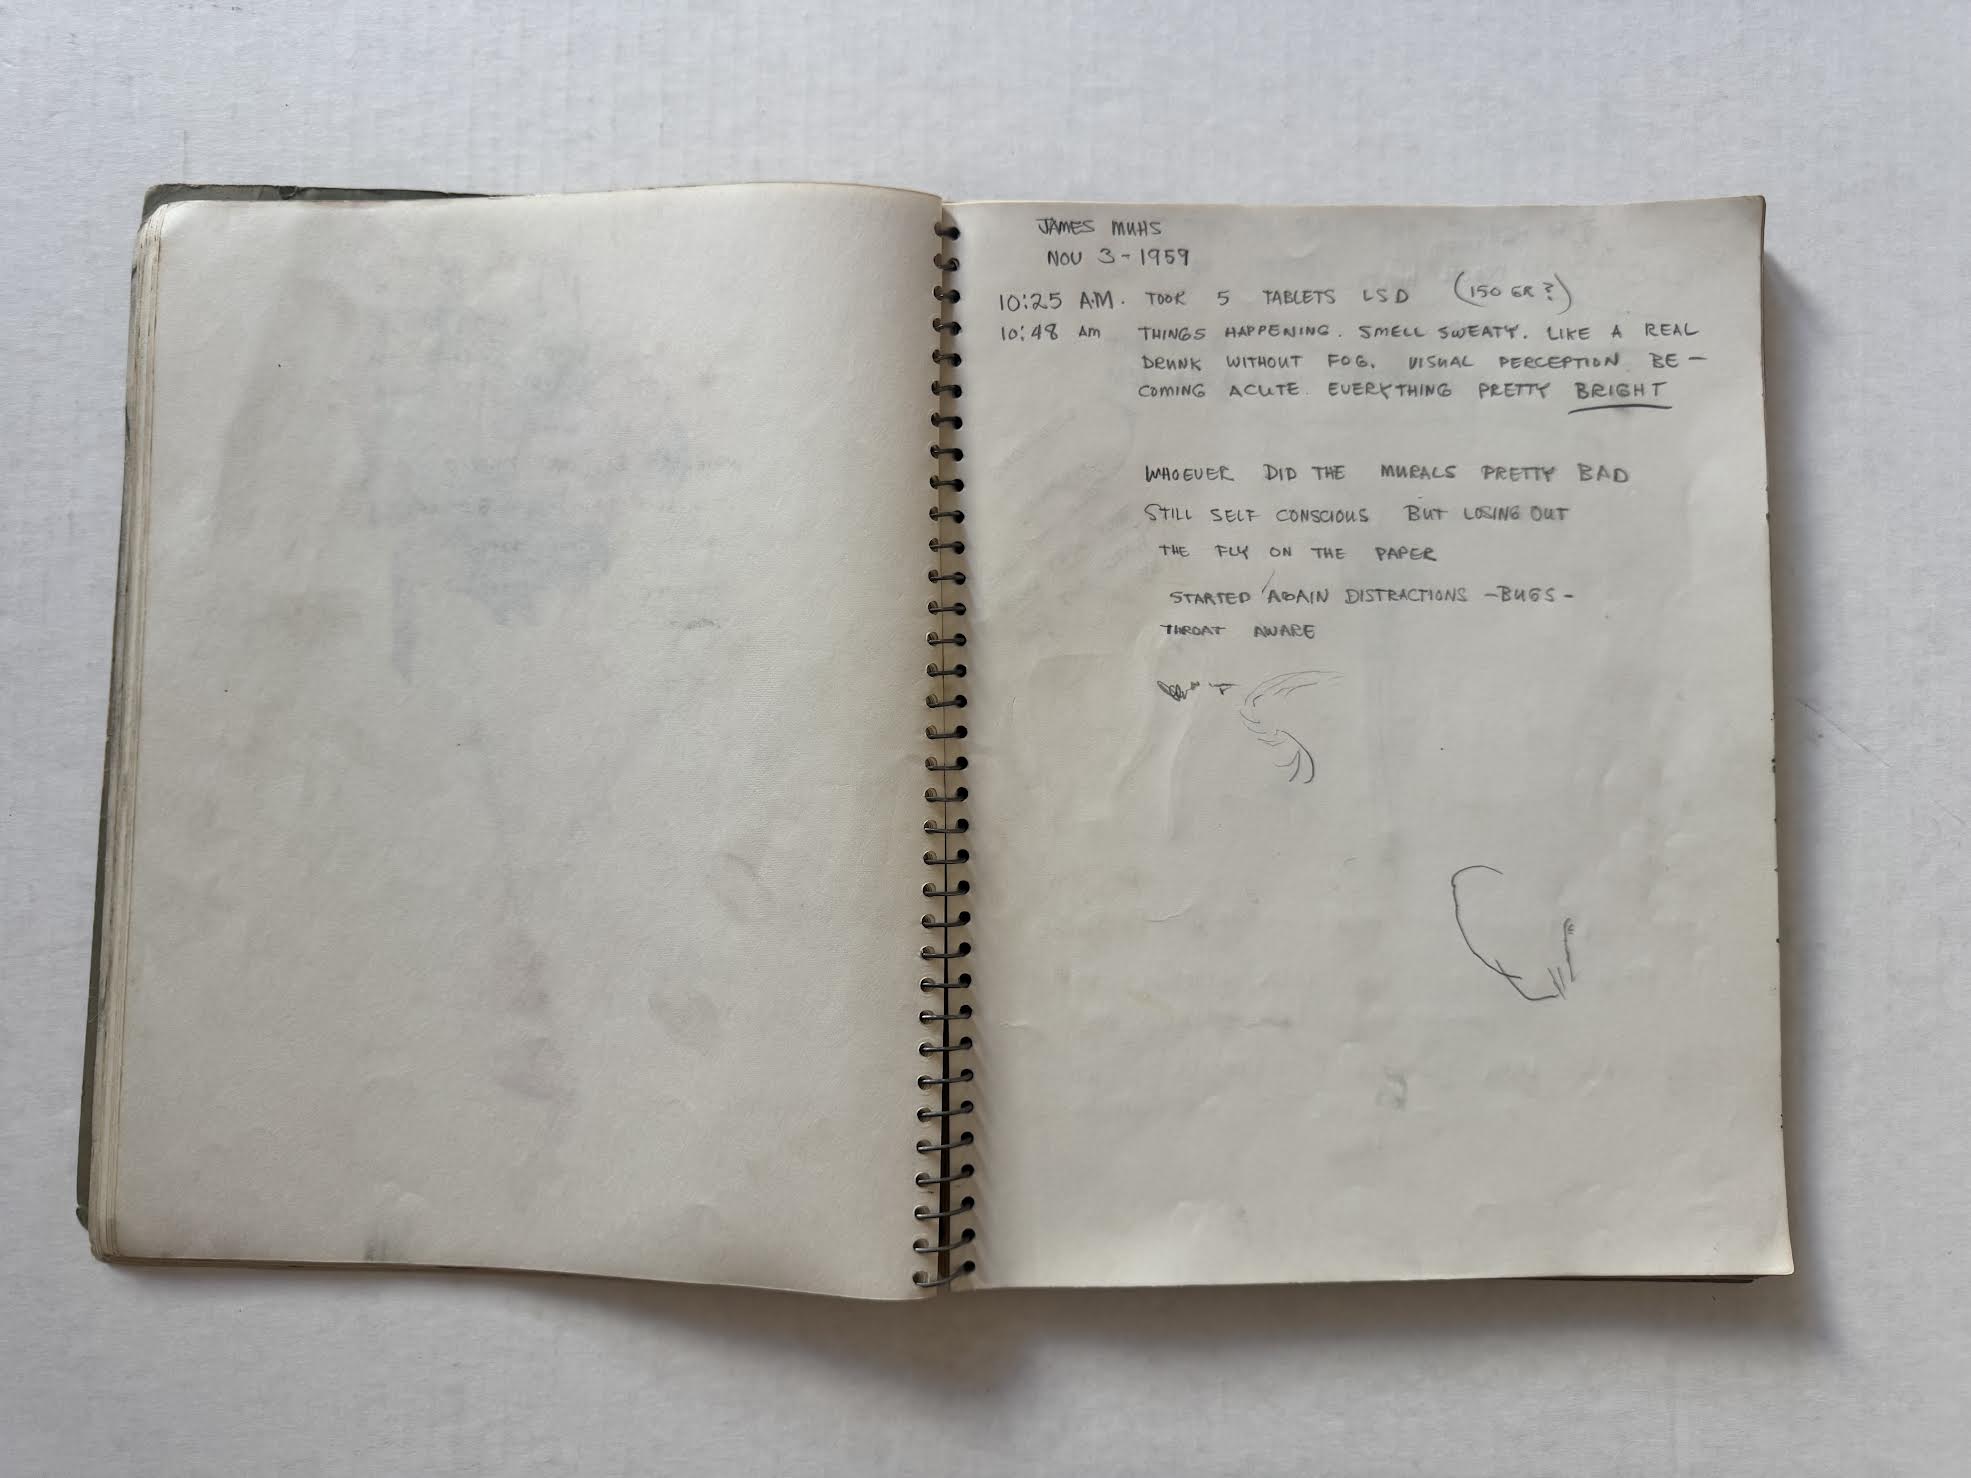 JAMES MUHS
NOV 3-1959
10:25 A.M. TOOK 5 TABLETS LSD (150 GR?)
10:48 AM THINGS HAPPENING. SMELL SWEATY. LIKE A REAL
DRUNK WITHOUT FOG. VISUAL PERCEPTION BE-
COMING ACUTE. EVERYTHING PRETTY BRIGHT
WHOEVER DID THE MURALS PRETTY BAD
STILL SELF CONSCIOUS BUT LOSING OUT
THE FLY ON THE PAPER
STARTED AGAIN DISTRACTIONS -BUGS-
THROAT AWARE